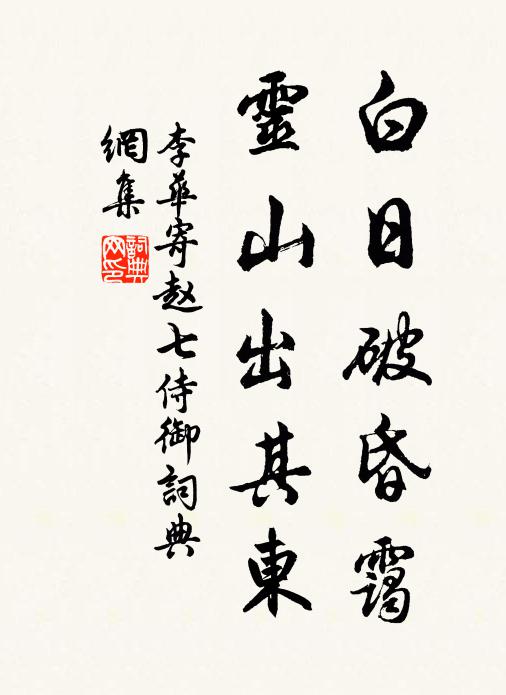 白日破昏靄
靈山出其東
李華寄赵七侍御詞典
網集
詞典网印